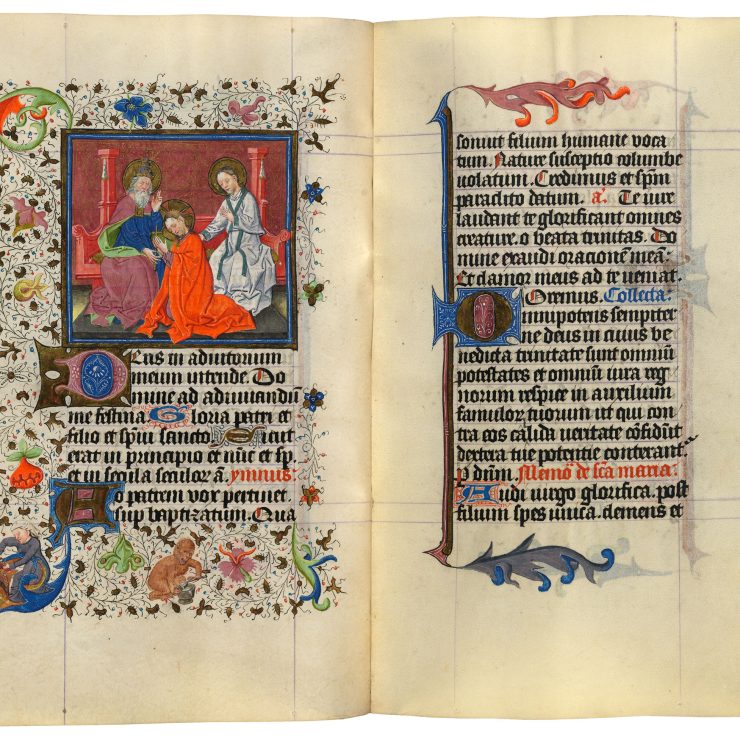 Deus in adiutorium
meum intende. Do
mine ad adiuuandū
me festina Gloria patri et
filio et spīu sancto. Sicut
erat in principio et nūc et sp̄
et in secula seculor ā. ymnus.
Ao patrem vox pertinet
sup baptizatum. Qua
sonuit filium humane voca
tum. Nature susceptio columbe
uolatum. Credimus et sp̄m
paraclito datum. a. Te iure
laudant te glorificant omnes
creature. o beata trinitas. Do
mine exaudi orationem meā:
Et clamor meus ad te ueniat.
Oremus. Collecta:
Omnipotens sempiter
ne deus in cuius be
nedicta trinitate sunt omniū
potestates et omniū iura reg
norum respice in auxilium
famulor tuorum ut qui con
tra eos calida ueritate cōfidūt
dextera tue potentie conterant.
P dūm. Memō de scā maria:
Audi uirgo glorifica. post
filium spes unica. clemens et